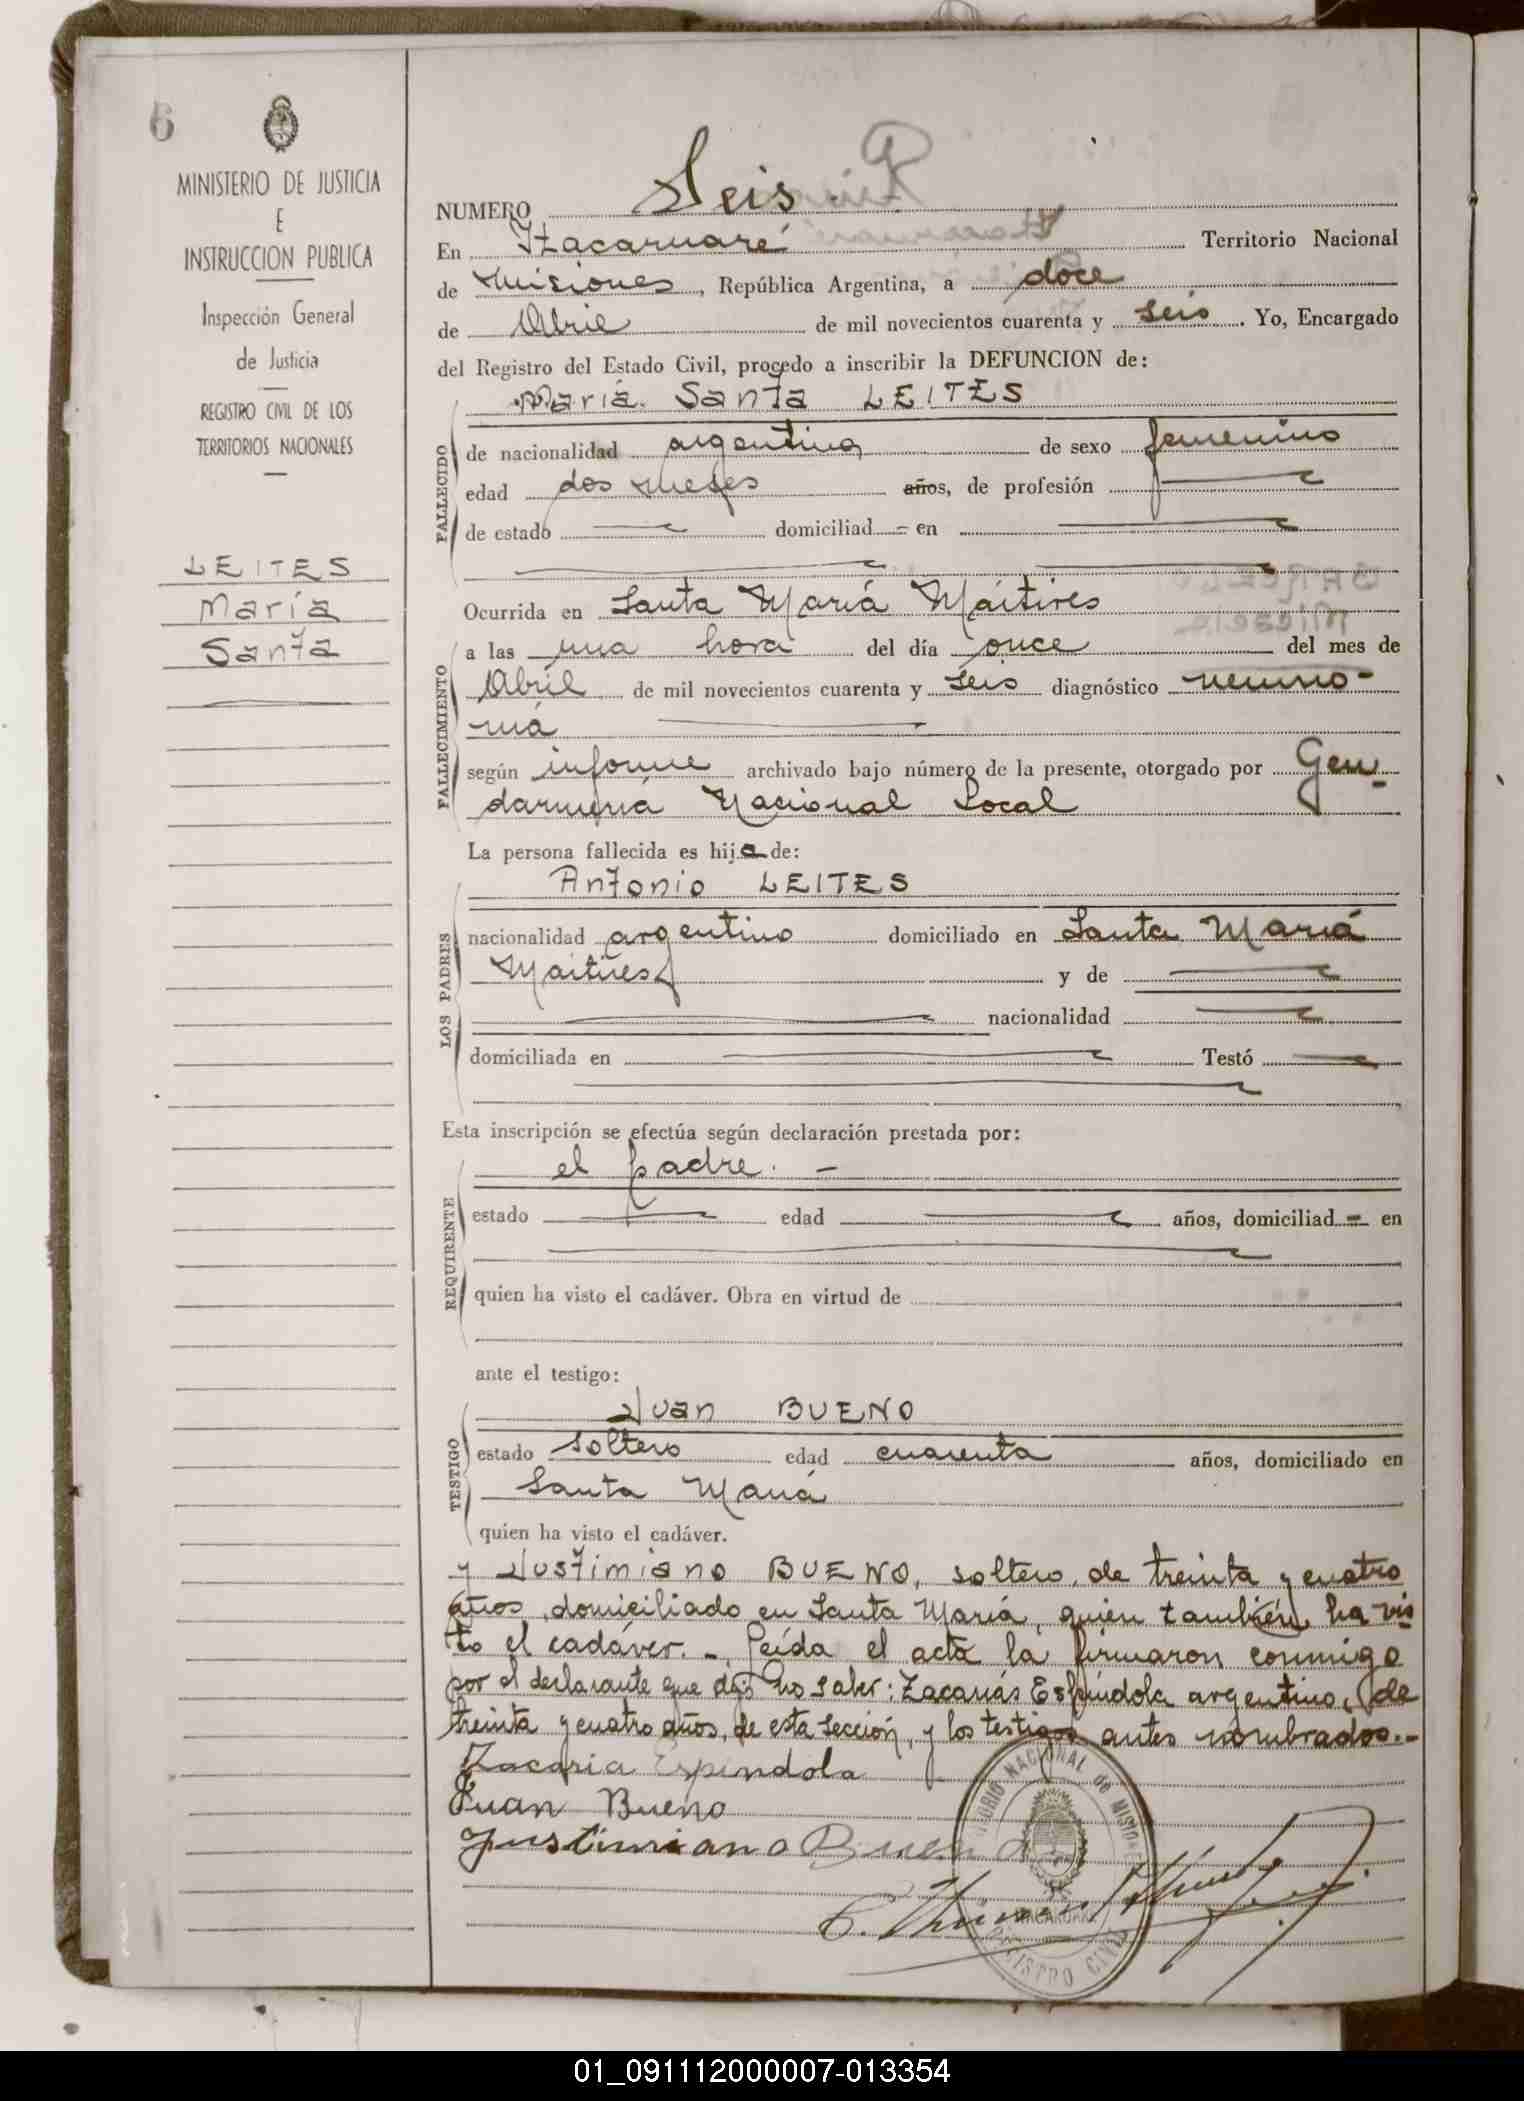 6
MINISTERIO DE JUSTICIA
E
INSTRUCCION PUBLICA
Inspección General
de Justicia
REGISTRO CIVIL DE LOS
TERRITORIOS NACIONALES
LEITES
María
Santa
NUMERO Seis
En Itacaruaré Territorio Nacional
de Misiones, República Argentina, a doce
de Abril de mil novecientos cuarenta y seis. Yo, Encargado
del Registro del Estado Civil, procedo a inscribir la DEFUNCION de:
María Santa LEITES
FALLECIDO
de nacionalidad argentina de sexo femenino
edad dos meses años, de profesión
de estado domiciliad - en
Ocurrida en Santa María Mártires
FALLECIMIENTO
a las una hora del día once del mes de
Abril de mil novecientos cuarenta y seis diagnóstico neumo-
nía
según informe archivado bajo número de la presente, otorgado por Gen-
darmería Nacional Local
La persona fallecida es hija de:
Antonio LEITES
LOS PADRES
nacionalidad argentino domiciliado en Santa María
Mártires y de
nacionalidad
domiciliada en Testó
Esta inscripción se efectúa según declaración prestada por:
el padre. -
REQUIRENTE
estado edad años, domiciliad - en
quien ha visto el cadáver. Obra en virtud de
ante el testigo:
Juan BUENO
TESTIGO
estado soltero edad cuarenta años, domiciliado en
Santa María
quien ha visto el cadáver.
y Justimiano BUENO, soltero, de treinta y cuatro
años, domiciliado en Santa María, quien también ha vis
to el cadáver. -. Leída el acta la firmaron conmigo
por el declarante que dijo no saber: Zacarías Espíndola argentino, de
treinta y cuatro años, de esta sección, y los testigos antes nombrados.-
Zacaria Espindola
Juan Bueno
Justimiano Bueno
TERRITORIO NACIONAL de MISIONES
ITACARUARE
REGISTRO CIVIL
01_091112000007-013354